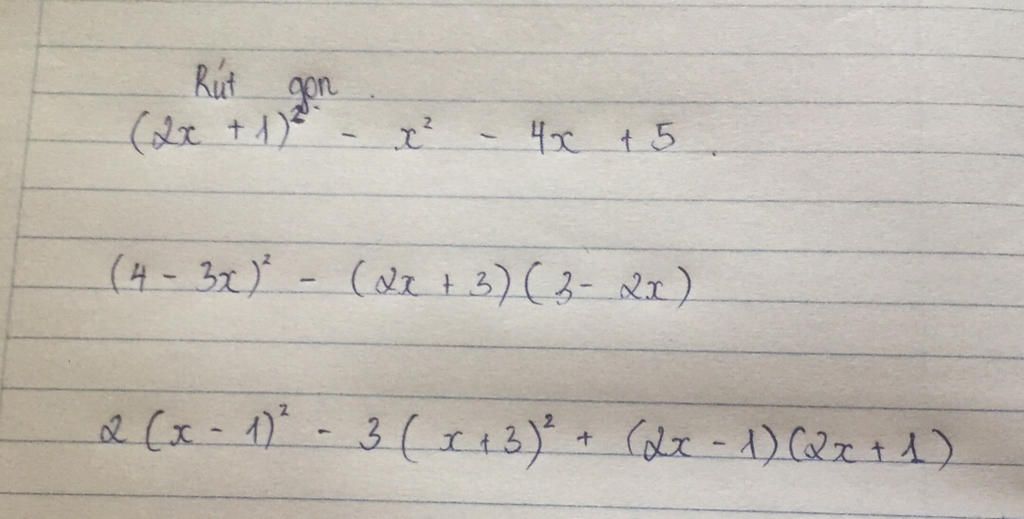 Rút gọn.
(2x + 1)² - x² - 4x + 5.
(4 - 3x)² - (2x + 3)(3 - 2x)
2(x - 1)² - 3(x + 3)² + (2x - 1)(2x + 1)